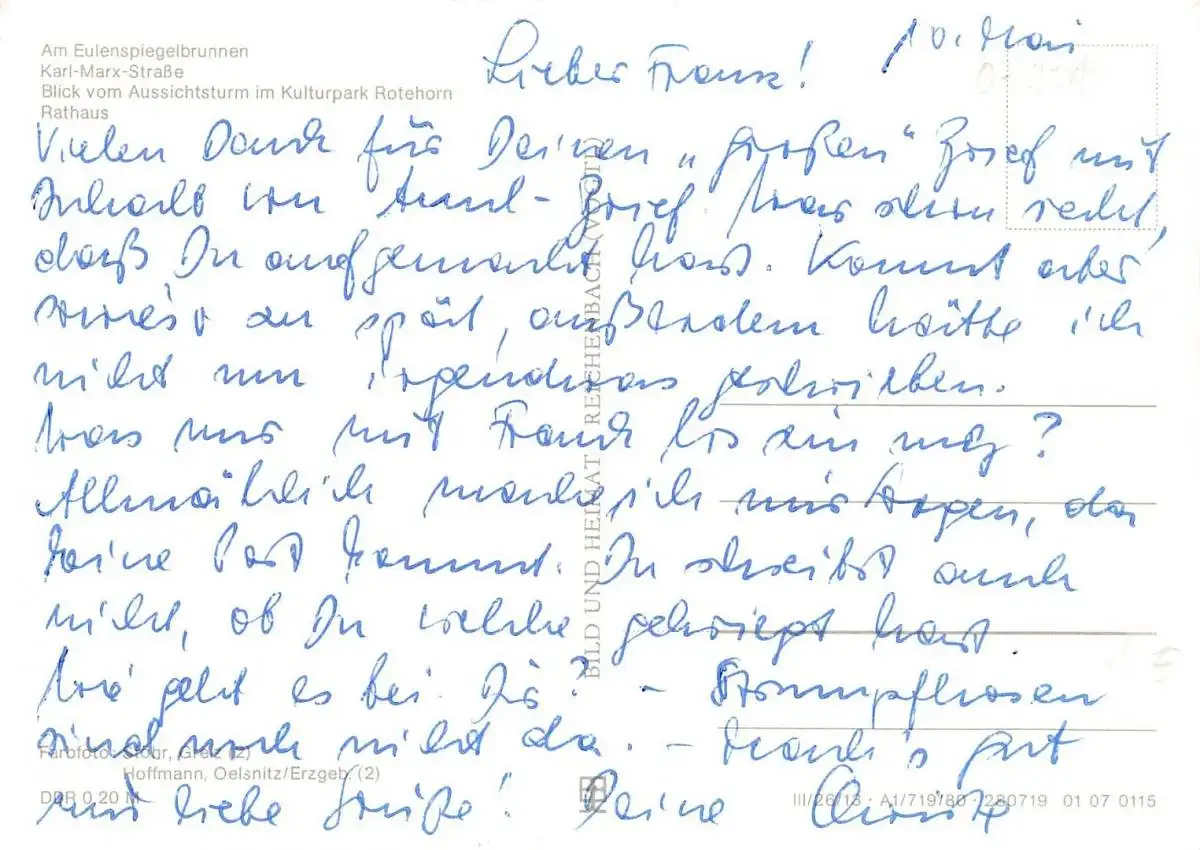 Am Eulenspiegelbrunnen
Karl-Marx-Straße
Blick vom Aussichtsturm im Kulturpark Rotehorn
Rathaus
10. Mai
Lieber Franz!
Vielen Dank für Deinen „großen" Brief mit
Inhalt von Brief. War schon recht,
daß Du aufgemacht hast. Kommt aber
zu spät, außerdem hätte ich
nicht um irgendwas geschrieben.
Was nur mit Frank los sein mag?
Allmählich mache ich mir Sorgen, da
keine Post kommt. Du schreibst auch
nicht, ob Du welche gekriegt hast.
Wie geht es bei Dir? – Strumpfhosen
sind noch nicht da. – Mach's gut
und liebe Grüße! Deine
BILD UND HEIMAT REICHENBACH (VOGTL)
Farbfoto: Stöhr, Greiz (2)
Hoffmann, Oelsnitz/Erzgeb. (2)
DDR 0,20 M
III/26/13 · A1/719/80 · 280719 01 07 0115